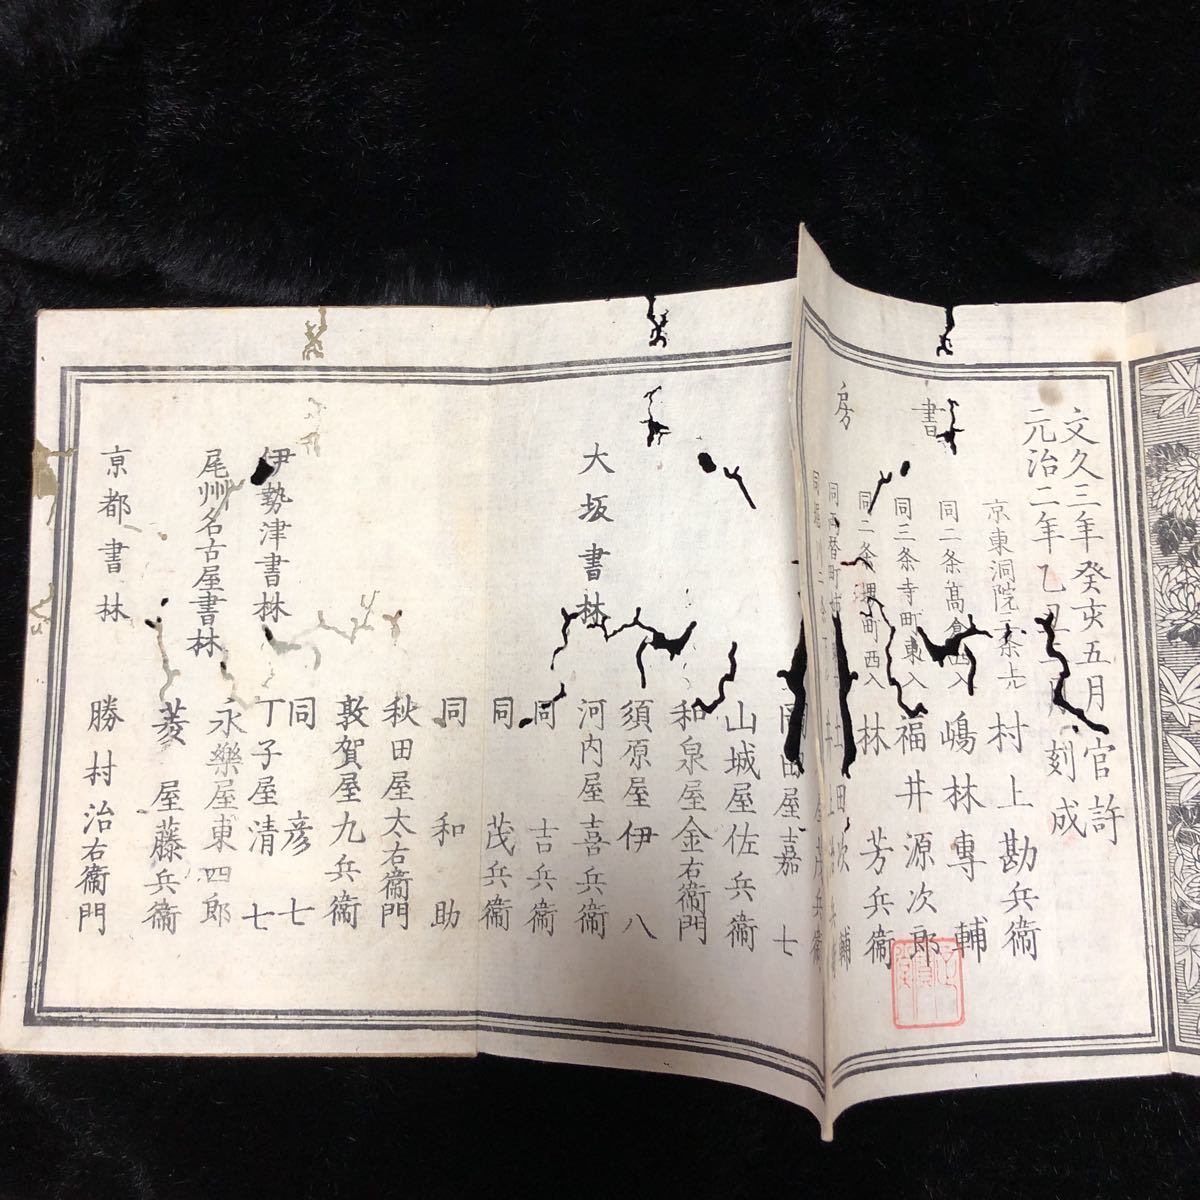 文久三年癸亥五月官許
元治二年乙 刻成
書房
京東洞院三条上 村上勘兵衛
同二条高倉西入 嶋林専輔
同三条寺町東入 福井源次郎
同二条堺町西入 林芳兵衛
田屋嘉七
山城屋佐兵衛
和泉屋金右衛門
須原屋伊八
大坂書林 河内屋喜兵衛
同 吉兵衛
同 茂兵衛
同 和助
秋田屋太右衛門
敦賀屋九兵衛
同 彦七
伊勢津書林 丁子屋清七
尾州名古屋書林 永樂屋東四郎
菱屋藤兵衛
京都書林 勝村治右衛門